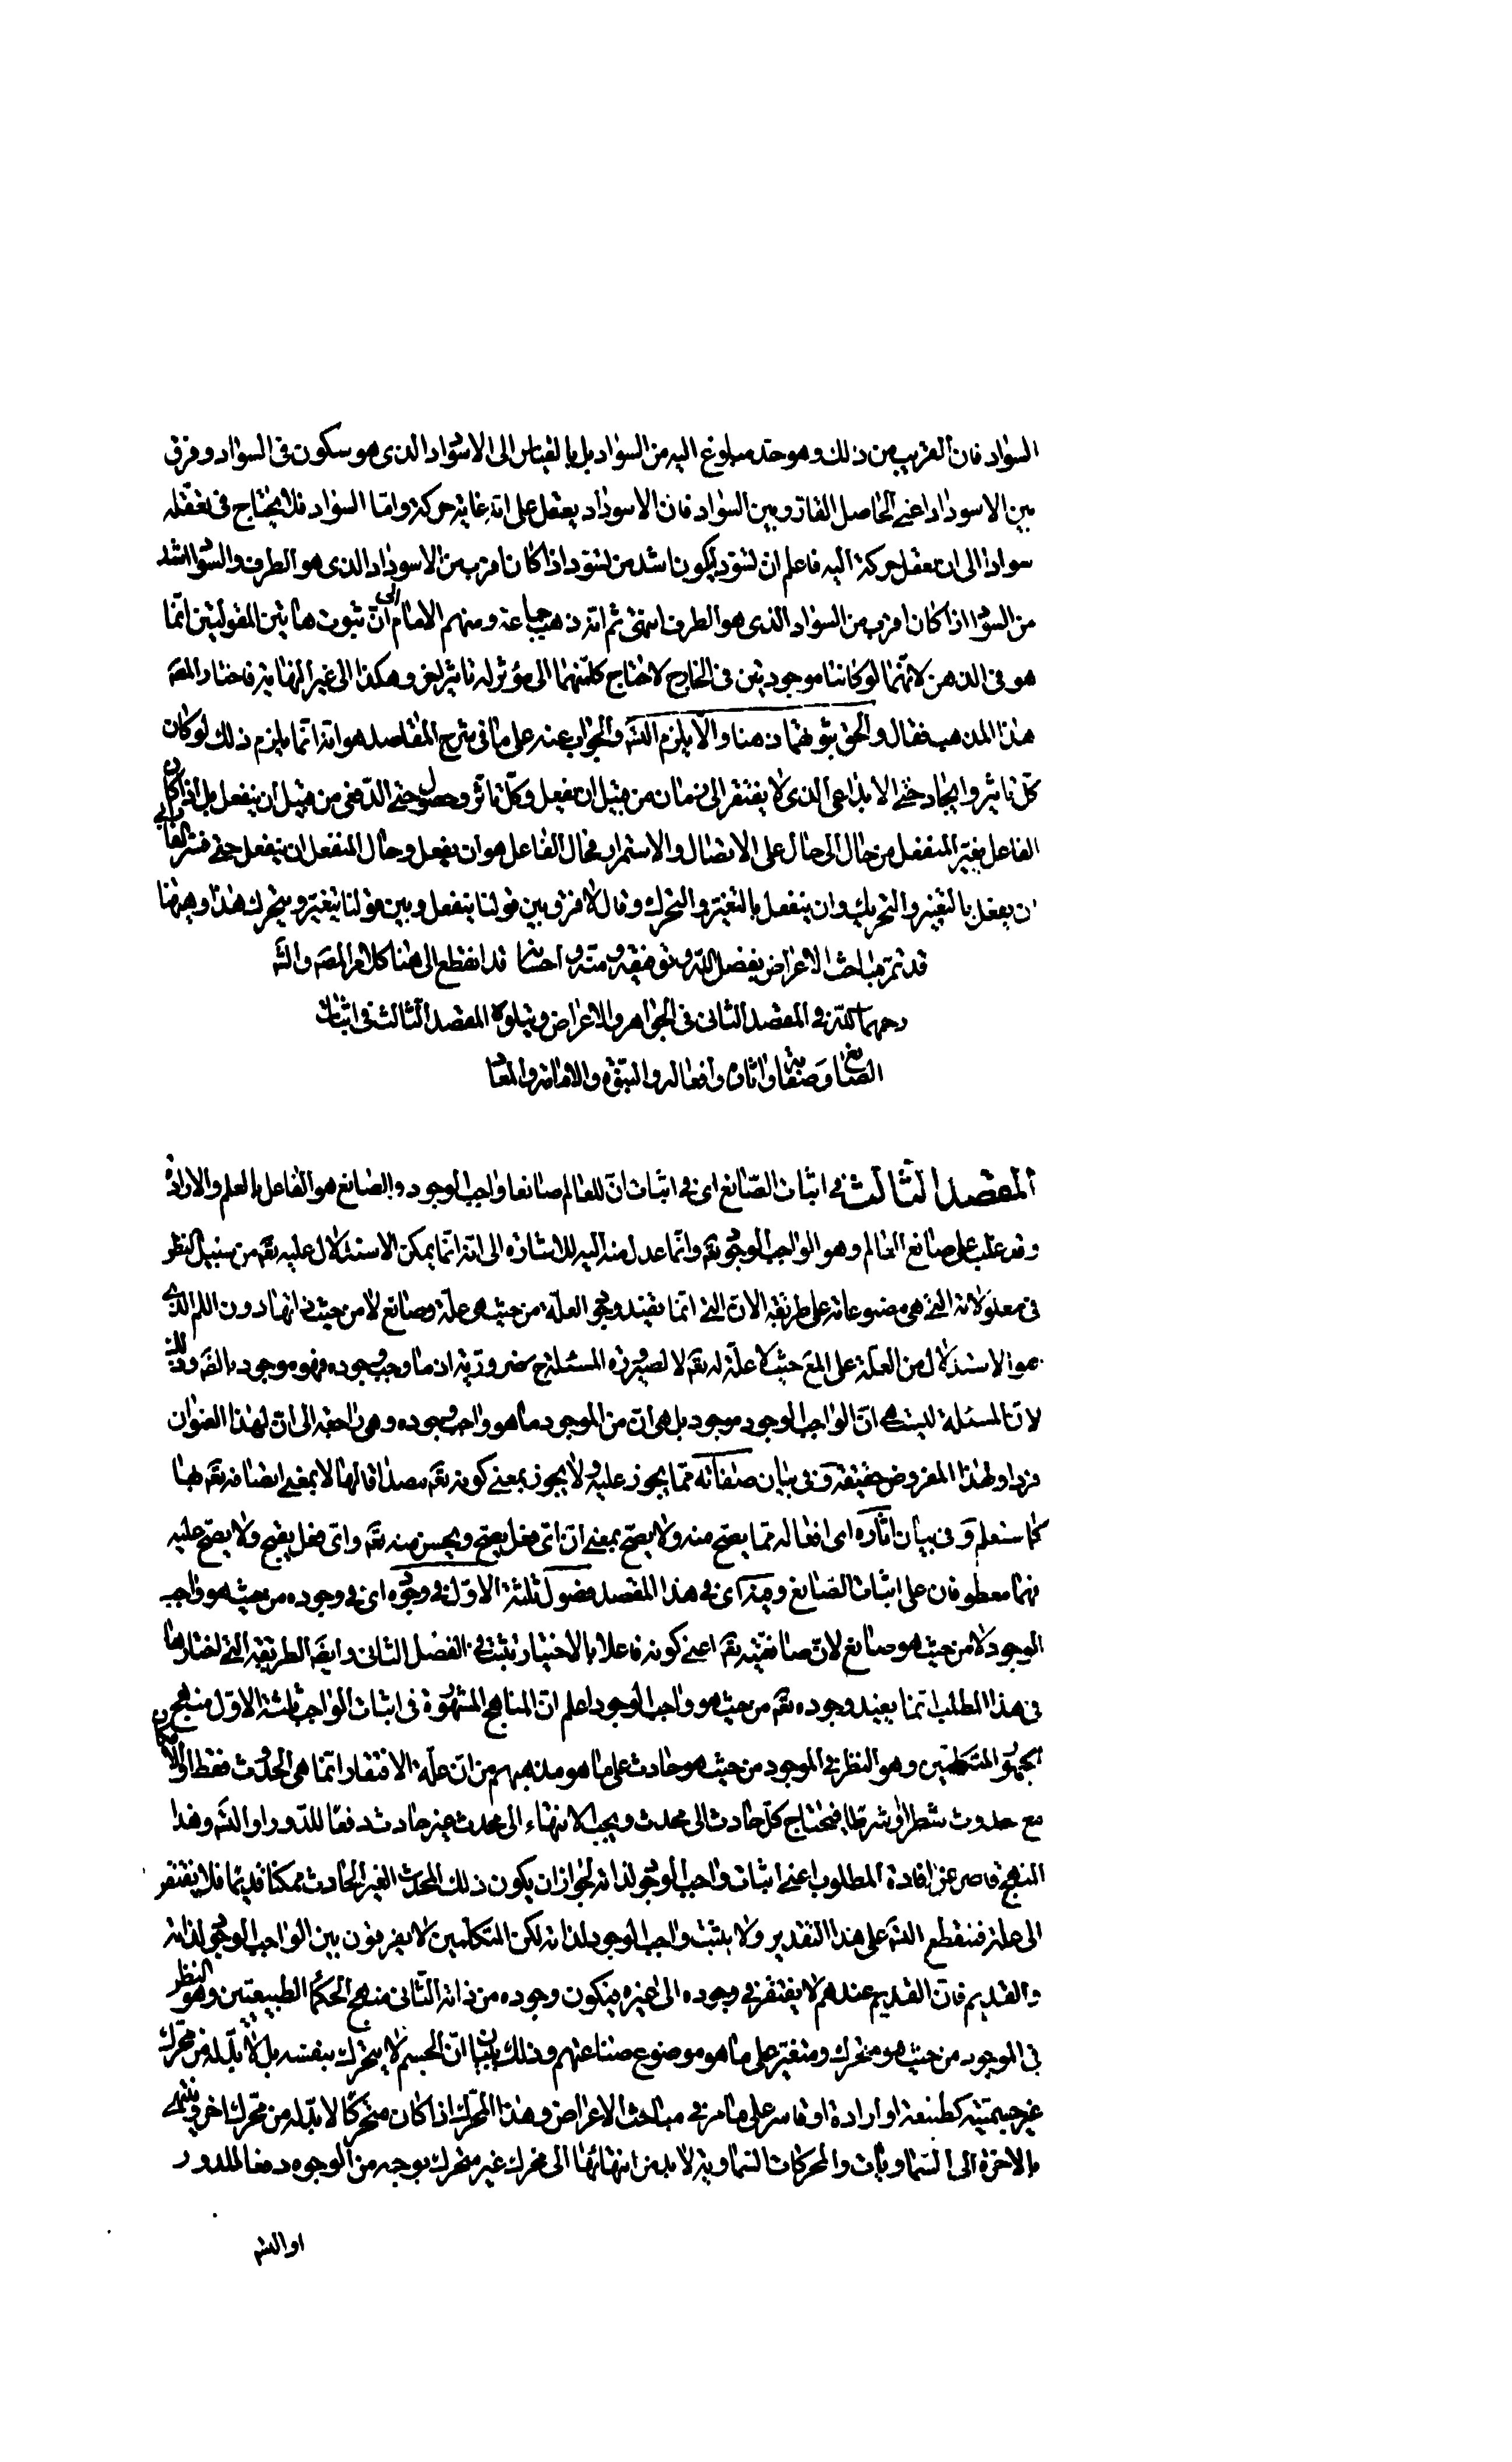 السواد فان القريب من ذلك وهو حد مبلوغ اليه من السواد بل بالقياس الى الاسوداد الذى هو سكون فى السواد وفرق
بين الاسوداد اعنى الحاصل القار وبين السواد فان الاسوداد يعقل على انه غاية حركة واما السواد فلا يحتاج فى تعقله
سوادا الى ان يعقل حركة اليه فاعلم ان تسود يكون اشد من تسود اذا كان اقرب من الاسوداد الذى هو الطرف والسواد اشد
من السواد اذا كان اقرب من السواد الذى هو الطرف انتهى ثم انه ذهب جماعة ومنهم الامام الى ان ثبوت هاتين المقولتين انما
هو فى الذهن لانهما لو كانتا موجودتين فى الخارج لاحتاج كل منهما الى مؤثر له تاثير اخر وهكذا الى غير النهاية فاختار المص
هذا المذهب فقال والحق ثبوتهما ذهنا والا يلزم التس والجواب عنه على ما فى شرح المقاصد هو انه انما يلزم ذلك لو كان
كل تاثير وايجاد حتى الابداعى الذى لا يفتقر الى زمان من قبيل ان يفعل وكل تاثر وحصول حتى الدفعى من قبيل ان ينفعل بل اذا كان
الفاعل يغير المنفعل من حال الى حال على الاتصال والاستمرار فحال الفاعل هو ان يفعل وحال المنفعل ان ينفعل حتى فسر الفارابى
ان يفعل بالتغيير والتحريك وان ينفعل بالتغير والتحرك وقال لا فرق بين قولنا ينفعل وبين قولنا يتغير ويتحرك هذا وههنا
قد تمت مباحث الاعراض بفضل الله وتوفيقه ومنه واحسانه قد انقطع الى هنا كلام المص والش
رحمهما الله فى المقصد الثانى فى الجواهر والاعراض ويتلوه المقصد الثالث فى اثبات
الصانع وصفاته واثاره وافعاله والنبوة والامامة والمعاد
المقصد الثالث فى اثبات الصانع اى فى اثبات ان للعالم صانعا واجب الوجود والصانع هو الفاعل بالعلم والارادة
وقد غلب على صانع العالم وهو الواجب الوجود تعم وانما عدل منه اليه للاشارة الى انه انما يمكن الاستدلال عليه تعم من سبيل النظر
فى معلولاته التى هى مصنوعاته على طريقة الان التى انما تفيد وجود العلة من حيث هى علة وصانع لا من حيث ذاتها دون اللم الذى
هو الاستدلال من العلة على المع حيث لا علة له تعم لا لصيرورة المسئلة ح ضرورية ان ما وجب وجوده فهو موجود بالضرورة وذلك
لان المسئلة ليست هى ان الواجب الوجود موجود بل هى ان من الموجود ما هو واجب وجوده وهى راجعة الى ان لهذا العنوان
فردا ولهذا المفروض حقيقة وفى بيان صفاته مما يجوز عليه ولا يجوز بمعنى كونه تعم مصداقا لها لا بمعنى اتصافه تعم بها
كما ستعلم وفى بيان اثاره اى افعاله مما يصح منه ولا يصح بمعنى ان اى فعل يصح ويحسن منه تعم واى فعل يقبح ولا يصح عليه
فهما معطوفان على اثبات الصانع وفيه اى فى هذا المقصد فصول ثلثة الاول فى وجوده اى فى وجوده من حيث هو واجب
الوجود لا من حيث هو صانع لان صانعيته تعم اعنى كونه فاعلا بالاختيار تثبت فى الفصل الثانى وايضا الطريقة التى اختارها
فى هذا المطلب انما يفيد وجوده تعم من حيث هو واجب الوجود اعلم ان المناهج المشهورة فى اثبات الواجب ثلثة الاول منهج
جمهور المتكلمين وهو النظر فى الموجود من حيث هو حادث على ما هو مذهبهم من ان علة الافتقار انما هى الحدوث فقط او الامكان
مع حدوث شطرا او شرطا فيحتاج كل حادث الى محدث ويجب الانتهاء الى محدث غير حادث دفعا للدور او التس وهذا
المنهج قاصر عن افادة المطلوب اعنى اثبات واجب الوجود لذاته لجواز ان يكون ذلك المحدث الغير الحادث ممكنا قديما فلا يفتقر
الى علة فينقطع التس على هذا التقدير ولا يثبت واجب الوجود لذاته لكن المتكلمين لا يفرقون بين الواجب الوجود لذاته
والقديم فان القديم عندهم لا يفتقر فى وجوده الى غيره فيكون وجوده من ذاته الثانى منهج الحكماء الطبيعيين وهو النظر
فى الموجود من حيث هو متحرك ومتغير على ما هو موضوع صناعتهم وذلك ببيان ان الجسم لا يتحرك بنفسه بل لا بد له من محرك
غير جسميته كطبيعة او ارادة او قاسر على ما مر فى مباحث الاعراض وهذا المحرك اذا كان متحركا لا بد له من محرك اخر وينتهى
بالاخرة الى السماويات والمحركات السماوية لا بد من انتهائها الى محرك غير متحرك بوجه من الوجوه دفعا للدور
او التس